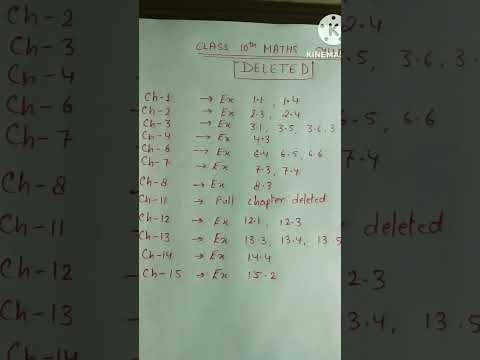 CLASS 10th MATHS
DELETED
Ch-1 → Ex 1.1, 1.4
Ch-2 → Ex 2.3, 2.4
Ch-3 → Ex 3.1, 3.5, 3.6, 3
Ch-4 → Ex 4.3
Ch-6 → Ex 6.4, 6.5, 6.6
Ch-7 → Ex 7.3, 7.4
Ch-8 → Ex 8.3
Ch-11 → Full chapter deleted
Ch-12 → Ex 12.1, 12.3
Ch-13 → Ex 13.3, 13.4, 13.5
Ch-14 → Ex 14.4
Ch-15 → Ex 15.2
KINEMA
Ch-2
Ch-3
Ch-4
Ch-6
Ch-7
Ch-8
Ch-11
Ch-12
Ch-13
Ch-14
2.4
.5, 3.6, 3
6.5, 6.6
7.4
deleted
2.3
3.4, 13.5